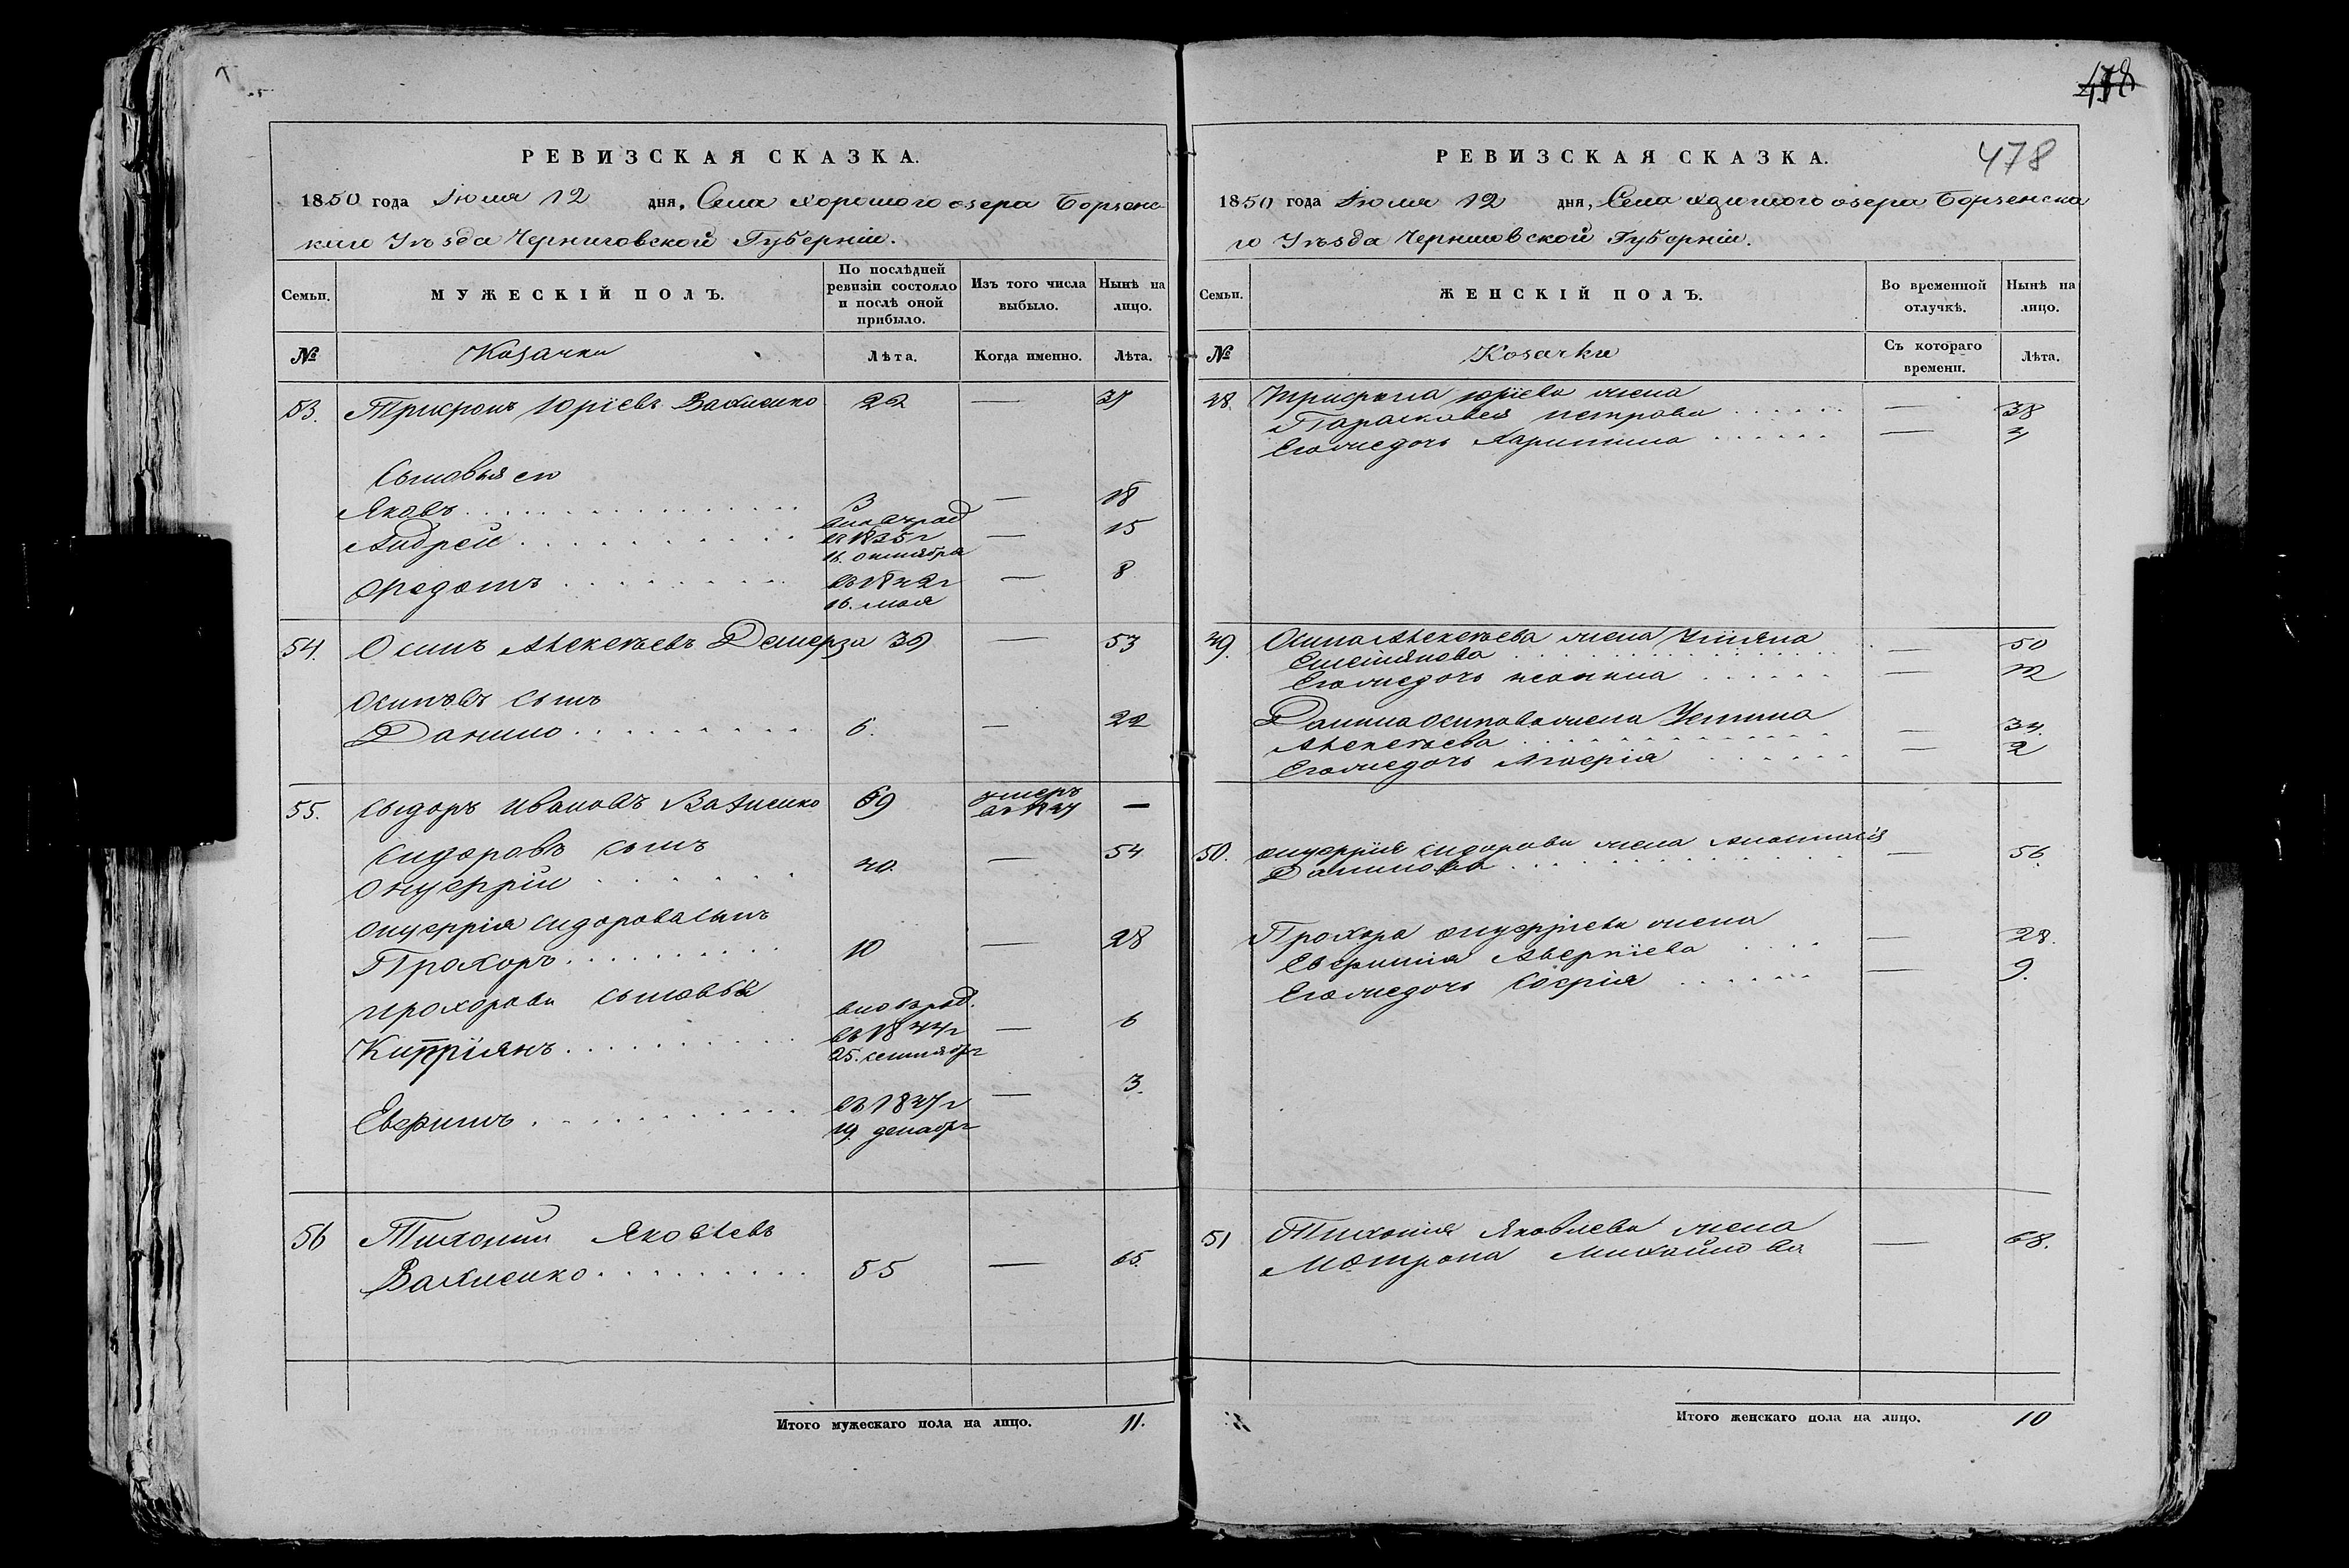 478
РЕВИЗСКАЯ СКАЗКА.
1850 года Іюля 12 дня, Села Хорошого озера Борзенс
каго Уѣзда Черниговской Губерніи.
Семьи.
МУЖЕСКІЙ ПОЛЪ.
По послѣдней ревизіи состояло и послѣ оной прибыло.
Изъ того числа выбыло.
Нынѣ на лицо.
№
Козачки
Лѣта.
Когда именно.
Лѣта.
53. Трифонъ Юріевъ 22 — 37
Сыновья его
Яковъ 3 — 18
Андрей вновь род въ 1835 г 16. октября — 15
Федотъ въ 1842 г 16. мая — 8
54. Осипъ Алексѣевъ 39 — 53
Осиповъ сынъ
Данило 6. — 22
55. Сидоръ Ивановъ 69 умеръ въ 1847 —
Сидоровъ сынъ
Онуфрій 40. — 54
Онуфрія Сидорова сынъ
Прохоръ 10 — 28
Прохоровы сыновья
Кипріянъ вновь род. въ 1844 г 25. сентября — 6
Евфимъ въ 1847 г 19. декабря — 3.
56 Тихоній Яковлевъ
55 — 65.
Итого мужескаго пола на лицо. 11.
РЕВИЗСКАЯ СКАЗКА.
478
1850 года Іюля 12 дня, Села Хорошого озера Борзенска
го Уѣзда Черниговской Губерніи.
Семьи.
ЖЕНСКІЙ ПОЛЪ.
Во временной отлучкѣ.
Нынѣ на лицо.
№
Козачки
Съ котораго времени.
Лѣта.
48. Трифона Юріева жена
Парасковея Петрова — 38
Его же дочь Харитина —
49. Осипа Алексѣева жена Уліяна
Емеліянова — 50
Его же дочь —
Данила Осипова жена Устина
Алексѣева — 34.
Его же дочь — 2
50. Онуфрія Сидорова жена Анастасія
Данилова — 56.
Прохора Онуфріева жена
Евфимія Аверкіева — 28.
Его же дочь Софія — 9.
51 Тихонія Яковлева жена
Мотрона Михайлова — 68.
Итого женскаго пола на лицо. 10